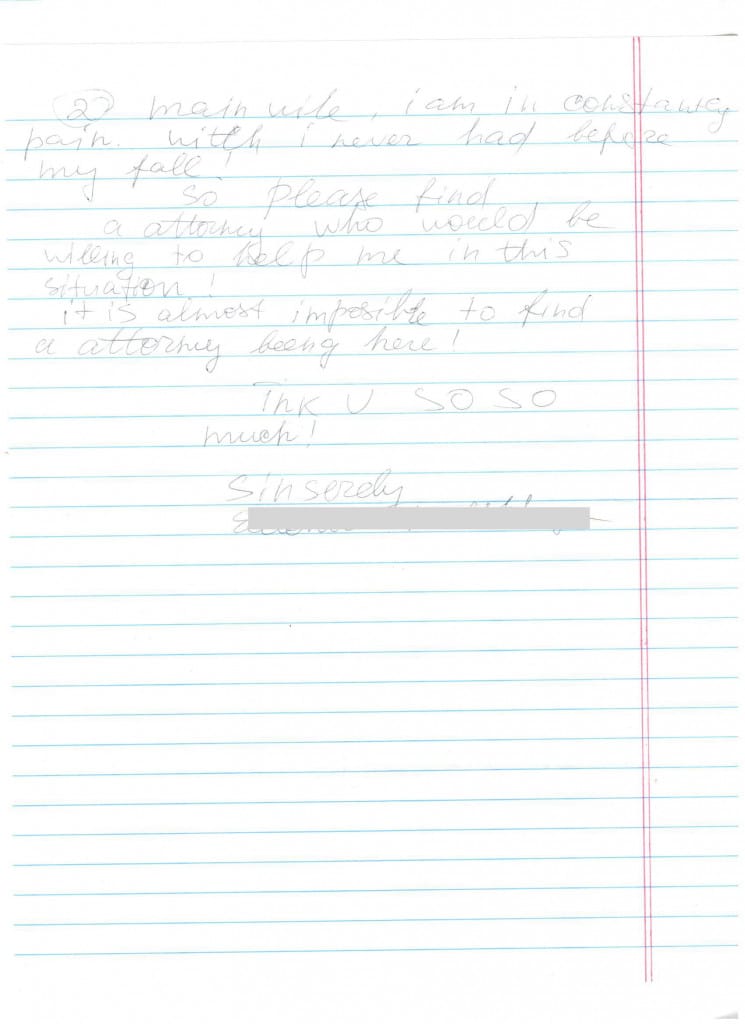 (2) main wile, i am in constantey
pain. witch i never had before
my fall!
So please find
a attorney who would be
willing to help me in this
situation!
it is almost imposible to find
a attorney beeng here!
Thk U SO SO
much!
Sinserely